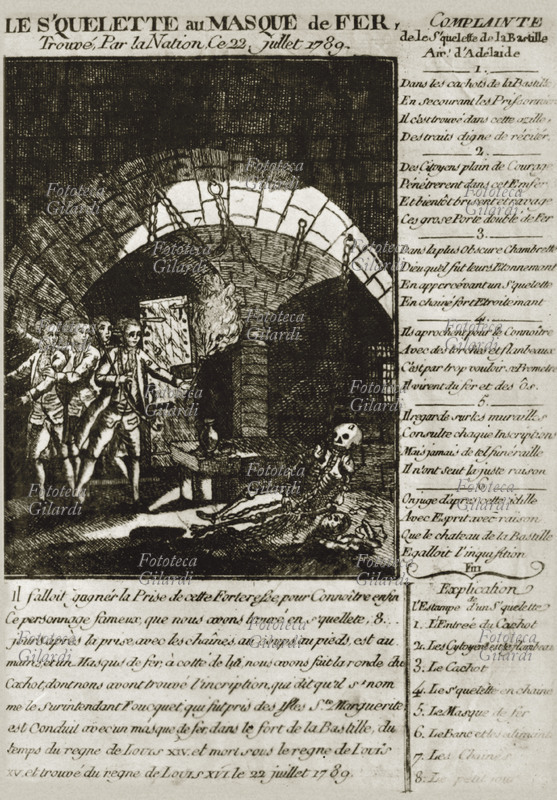 LE S'QUELETTE au MASQUE de FER,
Trouvé, Par la Nation, Ce 22 juillet 1789.
COMPLAINTE
de le S'quelette de la Bastille
Air: d'Adelaide
1.
Dans les cachots de la Bastille
En secourant les Prisonniers
Il c'est trouvé dans cette azille,
Des traits digne de réciter.
2.
Des Citoyens plain de Courage
Pénétrerent dans cet Emfer
Et bientot brisent et ravage
Ces grose Porte double de Fer
3.
Dans la plus Obscure Chambrette
Dieu quel fut leurs Etonnement
En appercévant un S'quelette
En chaine fort Etroitemant
4.
Ils aprochent pour le Connoitre
Avec des torches et flambeaux
C'est par trop vouloir
Il virent du fer et des ôs.
5.
Il regarde sur les murailles
Consulte chaque Inscriptions
Mais jamais de tel funéraille
Il n'ont seut la juste raison
6.
On juge d'apres cette idille
Avec Esprit avec raison
Que le chateau de la Bastille
Egalloit l'inquisition
Fin
Explication
de
L'Estampe d'un S'quelette
1. L'Entrée du Cachot
2. Les Cytoyens et le flambeau
3. Le Cachot
4. Le S'quelette en chaine
5. Le Masque de fer
6. Le Banc et les aliments
7. Les Chaines
8. Le petit
Il falloit gagner la Prise de cette Forteresse, pour Connoitre enfin
Ce personnage fameux, que nous avons trouvé en s'quellete, 8.
jours après la prise, avec les chaines, au col, mains, au pieds, est au
mur, et un Masque de fer, à cotté de lui, nous avons fait la ronde du
Cachot, dont nous avont trouvé l'incription, qui dit qu'il s'nom
me le Surintendant Foucquet qui fut pris des Isles Ste. Marguerite
est Conduit avec un masque de fer, dans le fort de la Bastille, du
temps du regne de Louis XIV. et mort sous le regne de Louis
XV. et trouvé du regne de Louis XVI le 22 juillet 1789.
Fototeca
Gilardi